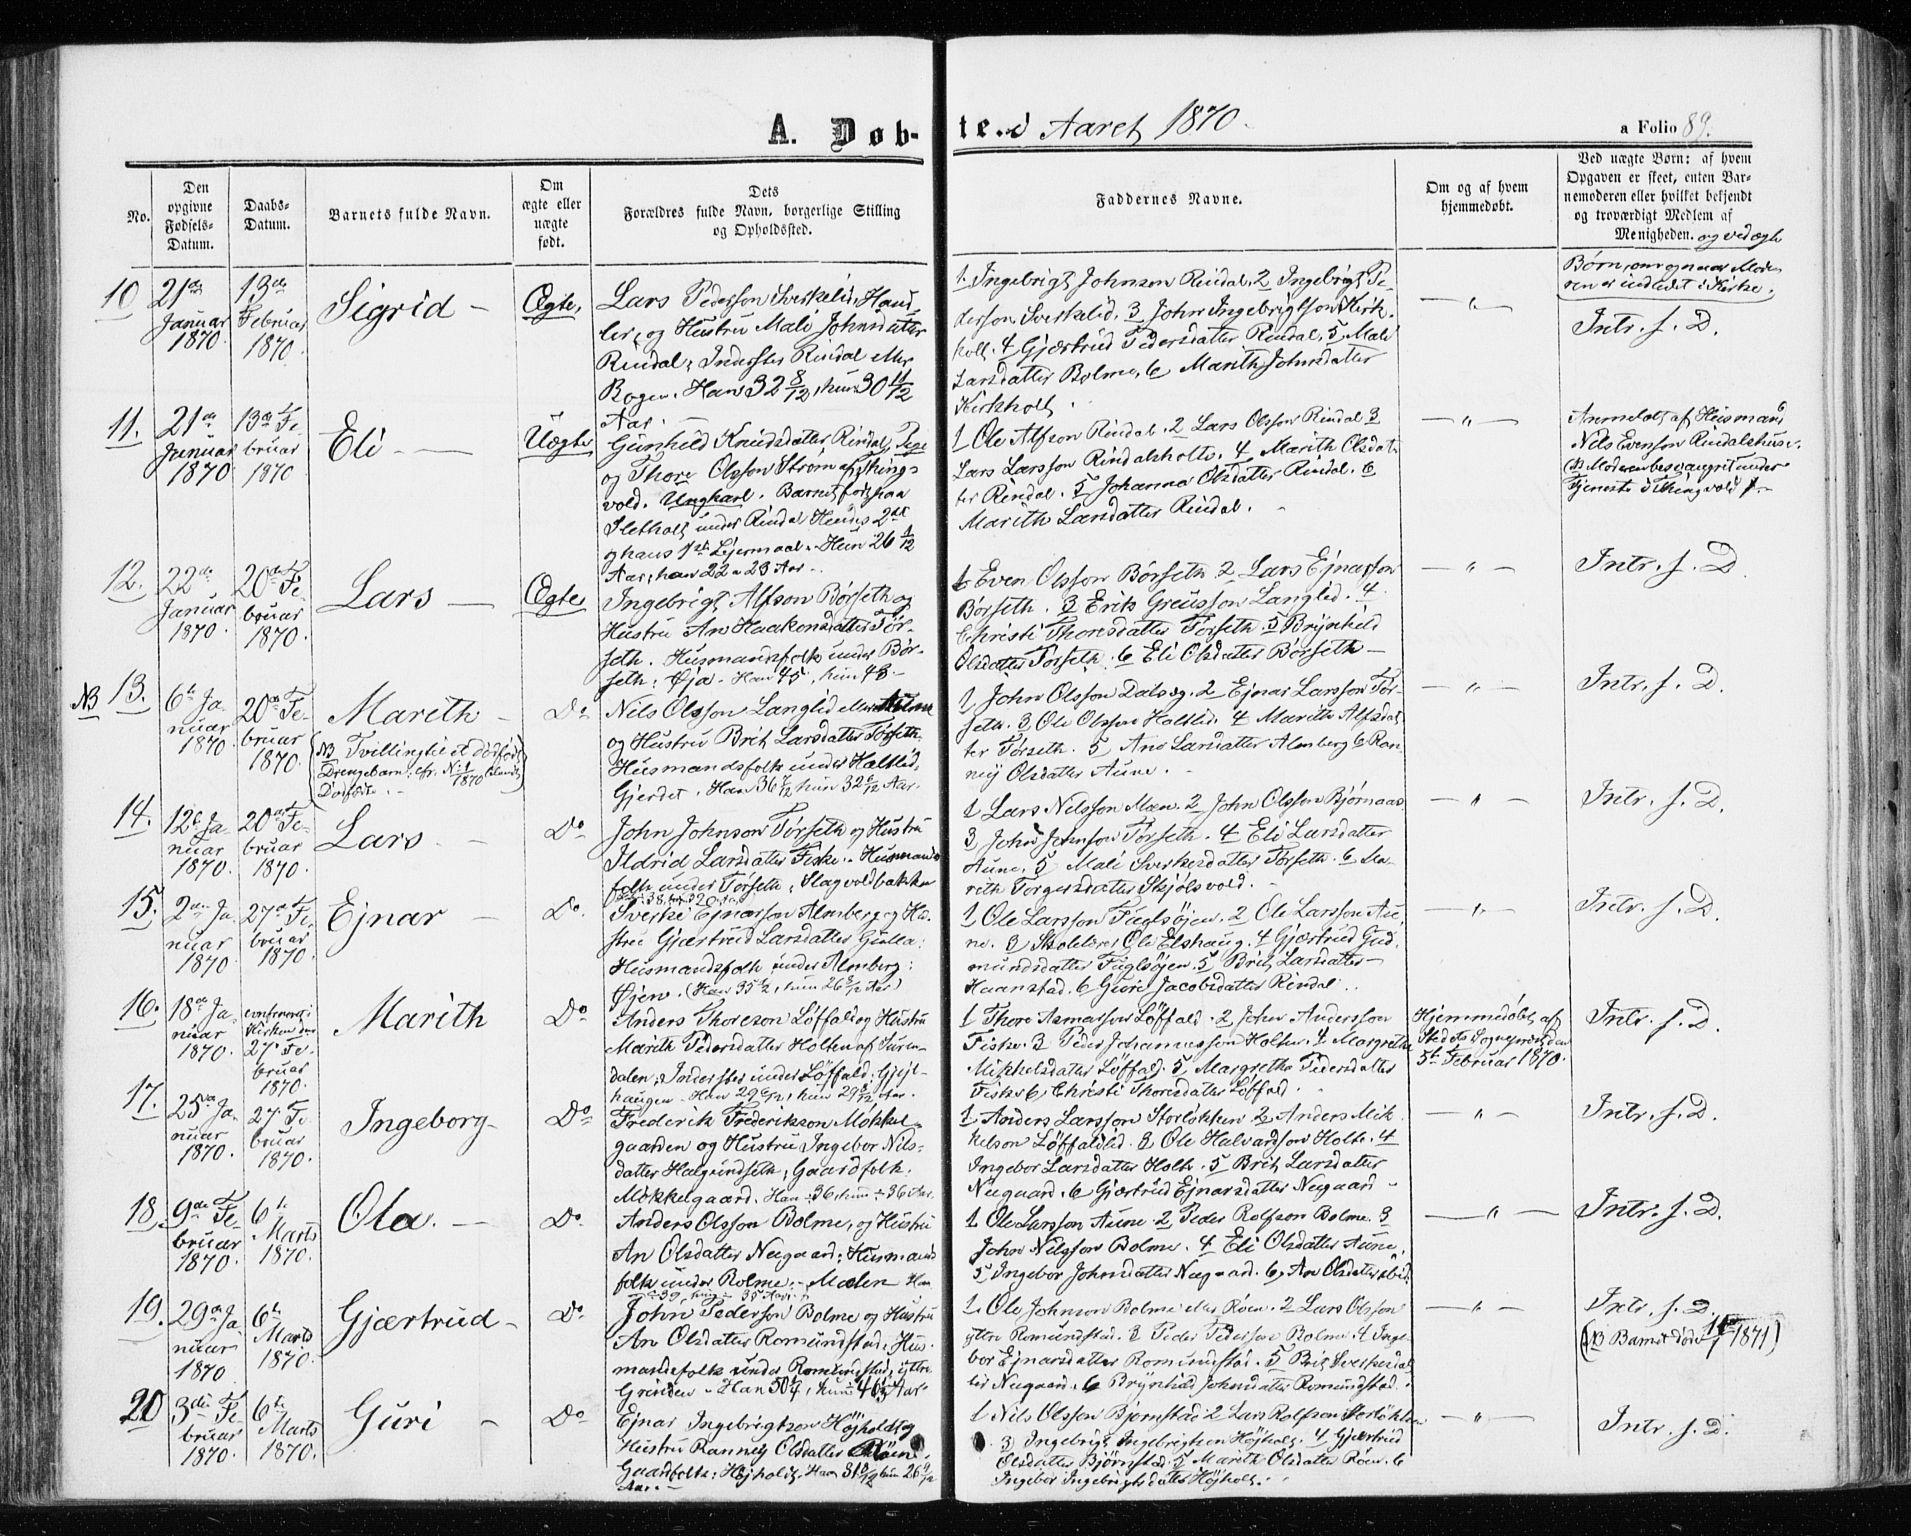 A. Døbte. i Aaret 1870.
a Folio 89.
No.
Den opgivne Fødsels-Datum.
Daabs-Datum.
Barnets fulde Navn.
Om ægte eller uægte født.
Dets Forældres fulde Navn, borgerlige Stilling og Opholdssted.
Faddernes Navne.
Om og af hvem hjemmedøbt.
Ved uægte Børn: af hvem
Opgaven er skeet, enten Bar-
nemoderen eller hvilket bekjendt
og troværdigt Medlem af
Menigheden. og ved ægte
Børn, om og naar Mode-
ren er indledet i Kirke.
10
21de Januar 1870.
13de Februar 1870.
Sigrid —
Ægte.
Lars Pederson Sverkelid, Hand-
ler, og Hustru Mali Johnsdatter
Rindal, Inderster Rindal
Bogen. Han 32 8/12, hun 30 11/12
Aar.
1 Ingebrigt Johnson Rindal. 2 Ingebrigt Pe-
derson Sverkelid. 3 John Ingebrigtson Kirk-
holt. 4 Gjærtrud Pedersdatter Rindal. 5 Mali
Larsdatter Bolme. 6 Marith Johnsdatter
Kirkholt.
— „ —
Intr. s. D.
11.
21de Januar 1870
13de Februar 1870
Eli —
Uægte
Gunhild Knudsdatter Rindal, Pige
og Thore Olsson Strøm af Thing-
vold. Ungkarl. Barnet født paa
Sletholt under Rindal Hendes 2det
og hans 1ste Lejermaal. Hun 26 1/12
Aar, han 22 a 23 Aar.
1 Ole Alfson Rindal. 2 Lars Olsson Rindal 3
Lars Larsson Rindalsholte. 4 Marith Olsdat-
ter Rindal. 5 Johanna Olsdatter Rindal. 6
Marith Larsdatter Rindal.
— „ —
Anmeldt af Husmand
Nils Evenson Rindalshus.
Moderen besvangret under
Tjeneste i Thingvold
12.
22de Januar 1870.
20de Februar 1870.
Lars —
Ægte
Ingebrigt Alfson Børseth og
Hustru An Haakonsdatter Tør-
seth. Husmandsfolk under Bør-
seth, Øja. Han 45, hun 48.
1 Even Olsson Børseth. 2 Lars Ejnarson
Børseth. 3 Erik Greusson Langlid. 4
Christi Thoresdatter Torseth. 5 Brynhild
Olsdatter Torseth. 6 Eli Olsdatter Børseth —
— „ —
Intr. s. D.
NB 13.
6te Januar 1870
20de Februar 1870
Marith —
(NB Tvilling til et dødfødt
Drengebarn, cfr. No 1 1870 blandt
Dødfødte.)
Do
Nils Olsson Langlid
og Hustru Brit Larsdatter Tørseth.
Husmandsfolk under Haltlid,
Gjerdet. Han 36 7/12 hun 32 6/12 Aar.
1 John Olsson Dalseg. 2 Ejnar Larsson Tør-
seth. 3 Ole Olsson Haltlid. 4 Marith Alfsdat-
ter Tørseth. 5 Ane Larsdatter Almberg 6 Ran-
nej Olsdatter Aune.
— „ —
Intr. s. D.
14.
12te Januar 1870.
20de Februar 1870.
Lars —
Do
John Johnson Tørseth og Hustru
Ildrid Larsdatter Fiske. Husmands-
folk under Tørseth, Slagvoldbakken
1 Lars Nilsson Mæn. 2 John Olsson Bjørnaas
3 John Johnson Torseth. 4 Eli Larsdatter
Aune. 5 Mali Sverkesdatter Torseth. 6 Ma-
rith Torgersdatter Skjølsvold.
— „ —
Intr. s. D.
15.
2den Januar 1870.
27de Februar 1870.
Ejnar —
Do.
Sverke Ejnarson Almberg og Hu-
stru Gjærtrud Larsdatter Gulla:
Husmandsfolk under Almberg:
Øjen.
1 Ole Larsson Fuglsøjen. 2 Ole Larsson Au-
ne. 3 Skolelærer Ole Elshaug. 4 Gjærtrud Gud-
mundsdatter Fuglsøjen. 5 Brit Larsdatter
Haanstad. 6 Guri Jacobsdatter Rindal.
— „ —
Intr. s. D.
16.
18de Januar 1870.
confirmeret i Kirken den 27de Februar 1870
Marith
Do
Anders Thoreson Løffald og Hustru
Marith Pedersdatter Holten af Suren-
dalen, Inderster under Løffald: Gjejl-
haugen. Han 29 6/12, hun 29 8/12 Aar.
1 Thore Asmarson Løffald. 2 John Andersson
Fiske. 3 Peder Johannesson Holten. 4 Margrethe
Mikkelsdatter Løffald. 5 Margretha Pedersdatter
Fiske 6 Christi Thoresdatter Løffald.
Hjemmedøbt af
Stedets Sognepræst den
5te Februar 1870.
Intr. s. D.
17.
25de Januar 1870.
27de Februar 1870.
Ingeborg —
Do
Frederik Frederikson Mokkel-
gaarden og Hustru Ingebor Nils-
datter Halgundseth, Gaardfolk.
Mokkelgaard. Han 36, hun 36 Aar.
1 Anders Larsson Storløkken 2 Anders Mik-
kelson Løffaldlid. 3 Ole Halvardson Holte. 4
Ingebor Larsdatter Holte. 5 Brit Larsdatter
Nugaard. 6 Gjærtrud Ejnarsdatter Nugaard.
— „ —
Intr. s. D.
18.
9de Februar 1870.
6te Marts 1870.
Ola. —
Do.
Anders Olsson Bolme, og Hustru
An Olsdatter Nugaard; Husmands-
folk under Bolme. Mælen Han
39, hun 35 Aar.
1 Ole Larsson Aune. 2 Peder Rolfson Bolme. 3
John Nilsson Bolme. 4 Eli Olsdatter Aune.
5 Ingebor Johnsdatter Nugaard. 6 An Olsdatter
— „ —
Intr. s. D.
19.
29de Januar 1870
6te Marts 1870.
Gjærtrud —
Do.
John Pederson Bolme og Hustru
An Olsdatter Romundstad, Hus-
mandsfolk under Romundstad, yttre
Grinden.
1. Ole Johnson Bolme eller Røen. 2 Lars Olsson
yttre Romundstad. 3 Peder Pederson Bolme. 4 Inge-
bor Ejnarsdatter Romundstad. 5 Brit Sverkesdat-
ter Nugaard. 6 Brynhild Johnsdatter Romundstad.
— „ —
Intr. s. D.
(NB Barnet døde 1871)
20
3die Februar 1870.
6te Marts 1870.
Guri —
Do
Ejnar Ingebrigtson Højholdt og
Hustru Rannej Olsdatter Røen.
Gaardfolk, Højholdt, Han 31 hun 26
Aar.
1 Nils Olsson Bjørnstad. 2 Lars Rolfson Storløkken
3 Ingebrigt Ingebrigtson Højholt. 4 Gjærtrud
Olsdatter Bjørnstad. 5 Marith Olsdatter Røen. 6
Ingebor Ingebrigtsdatter Højholt.
— „ —
Intr. s. D.